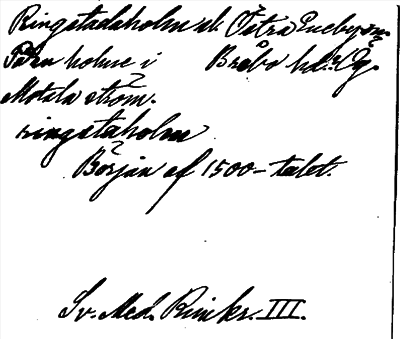 Ringstadaholm sl. Östra Eneby sn.
På en holme i Bråbo hd. Ög.
Motala ström.
ringstaholm
Början af 1500-talet.
Sv. Med. Rimkr. III.